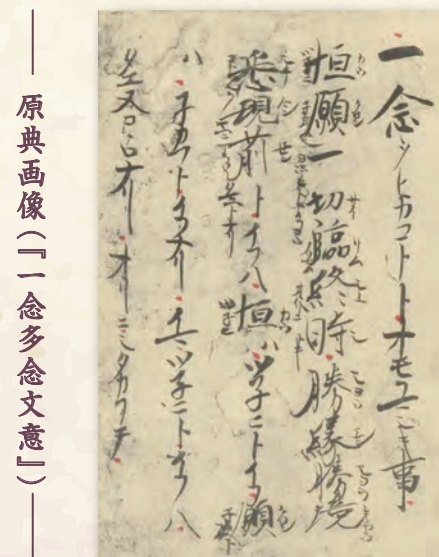 一念ヲヒカコトトオモフマシキ事
恒願一切臨終時勝縁勝境
悉現前トイフハ恒ハツネニトイフ願
ハネカフトイフナリイマツネニトイフハ
タエヌココロナリオリニシタカフテ
原典画像(『一念多念文意』)